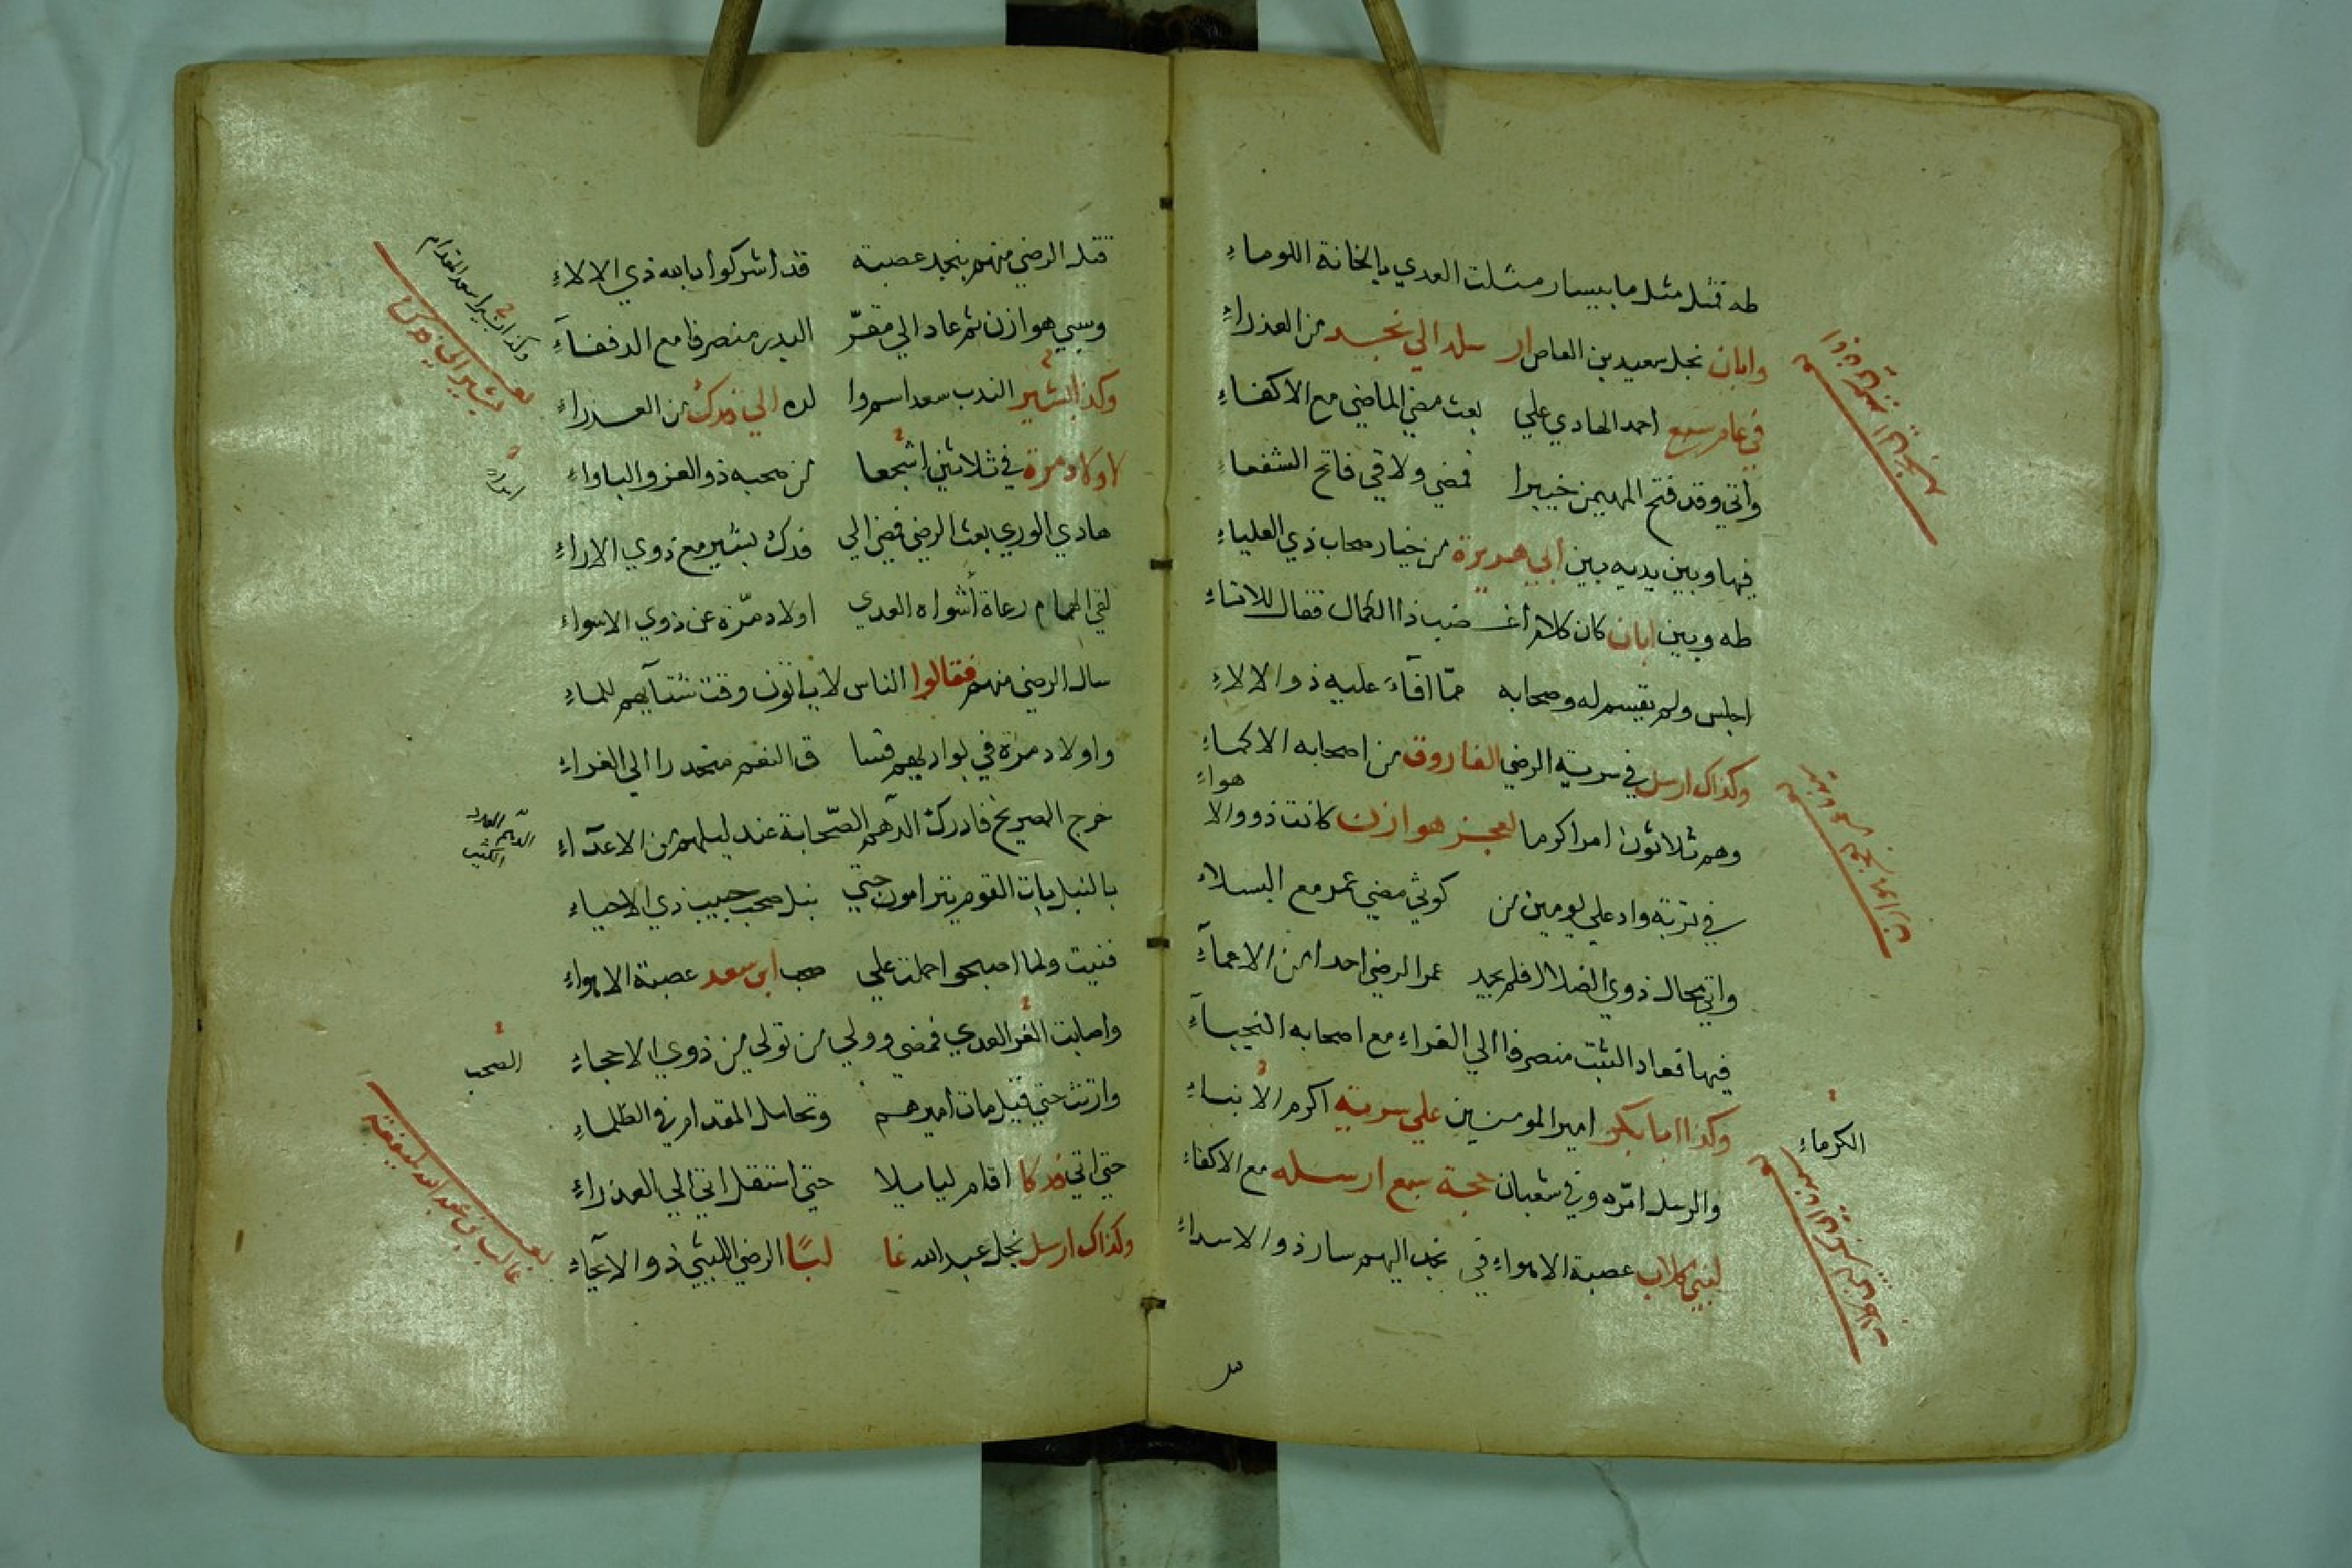 طه قتل مثل ما بيسار مثلت العدي بالخانة اللوماء
وابان نجل سعيد بن العاص ارسله الي نجد من العذراء
في عام سبع احمد الهادي علي بعث مضي الماضي مع الاكفاء
واتي وقد فتح المهيمن خيبرا فمضي ولاقي فاتح الشفعاء
فيها وبين يديه بين أبي هريرة من خيار صحاب ذي العلياء
طه وبين ابان كان كلام أغضب ذا الكمال فقال للاتاء
اجلس ولم يقسم له وصحابه ممّا افآء عليه ذو الالاء
وكذاك ارسل في سرية الرضي الفاروق من اصحابه الاكماء
وهم ثلاثون امرا كرما لعجز هوازن كانت ذووالا
هواء
في تربة واد علي يومين من كوثي مضي عمر مع البسلاء
واتي محال ذوي الضلال فلم يجد عمر الرضي احدا من الاعمآء
فيها فعاد الثبت منصرفا الي الغراء مع اصحابه النجبآء
وكذا ابا بكر امير المومنين علي سرية اكرم الأنباء
الكرماء
والرسل امّره وفي شعبان حجة سبع ارسله مع الاكفاء
لبني كلاب عصبة الاهواء في نجد اليهم سار ذو الاسداء
قتل الرضي منهم بنجد عصبة قد اشركوا بالله ذي الالاء
وسبي هوازن ثم عاد الي مقرّ البدر منصرفا مع الدففآء
وكذا بشير الندب سعد اسمروا لده الي فدك من العذراء
وكذا بشيرا سعد المقدام
بعث بشير الي فدك
لاولاد مرة في ثلاثين اشجعا من صحبه ذو العز والباواء
هادي الوري بعث الرضي فمضي الي فدك بشير مع ذوي الاراء
لقي الهمام رعاة أشواه العدي اولاد مرّة عن ذوي الاسواء
سال الرضي منهم فقالوا الناس لا ياتون وقت شتآيهم للماء
واولاد مرة في بواديهم فسا ق النعم منحدرا الي الغراء
خرج الصريخ فادرك الدهم الصّحابة عند ليلهم من الاعدآء
الدهم العدد الكثير
بالنبل بات القوم يترامون حتي نبل صحب حبيب ذي الاحياء
فنيت ولما اصبحوا حملت علي صحب ابن سعد عصبة الاهواء
واصابت الغر العدي فمضي وولي من تولي من ذوي الاحجاء
الصحب
وارتث حتي قيل مات اميرهم وتحامل المقدام في الظلماء
حتي اتي فدكا اقام لياليلا حتي استقل اتي الي العذراء
وكذاك ارسل نجل عبد الله غا لبًا الرضي الليثي ذو الايحآء
بعث غالب بن عبد الله لميفعة